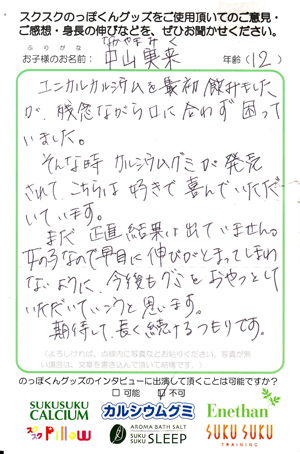 スクスクのっぽくんグッズをご使用頂いてのご意見・
ご感想・身長の伸びなどを、ぜひお聞かせください。
ふりがな なかやまみく
お子様のお名前: 中山実来 年齢(12)
ユニカルカルシウムを最初飲みました
が、残念ながら口に合わず困って
いました。
そんな時カルシウムグミが発売
されて、こちらは好きで喜んでいただ
いています。
まだ正直結果は出ていません。
女の子なので早目に伸びがとまってしまわ
ないように、今後もグミをおやつとして
いただいていこうと思います。
期待して、長く続けるつもりです。
(よろしければ、点線内に写真などお貼りください。写真が無
い場合は、文章を書き込んで頂いて結構です。)
のっぽくんグッズのインタビューに出演して頂くことは可能ですか?
□可能 ☑不可
SUKUSUKU CALCIUM カルシウムグミ Enethan
スクスク Pillow AROMA BATH SALT SUKU SUKU SLEEP SUKU SUKU TRAINING